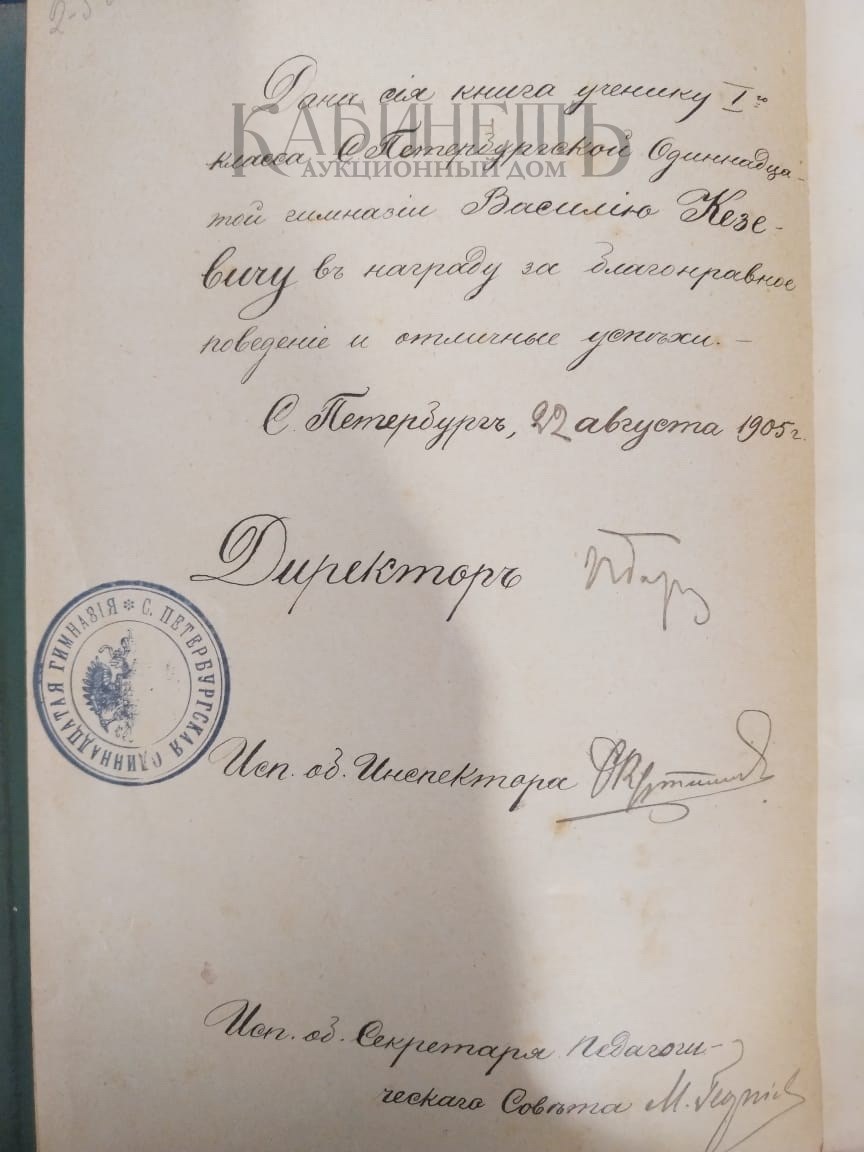 Дана сія книга ученику I го
класса С Петербургской Одиннадца-
той гимназіи Василію Кезе-
вичу въ награду за благонравное
поведеніе и отличные успѣхи. –
С. Петербургъ, 22 августа 1905 г.
Директоръ
Исп. об. Инспектора
Исп. об. Секретаря Педагоги-
ческаго Совѣта М.
С. ПЕТЕРБУРГСКАЯ ОДИННАДЦАТАЯ ГИМНАЗІЯ *
КАБИНЕТЪ
АУКЦИОННЫЙ ДОМ